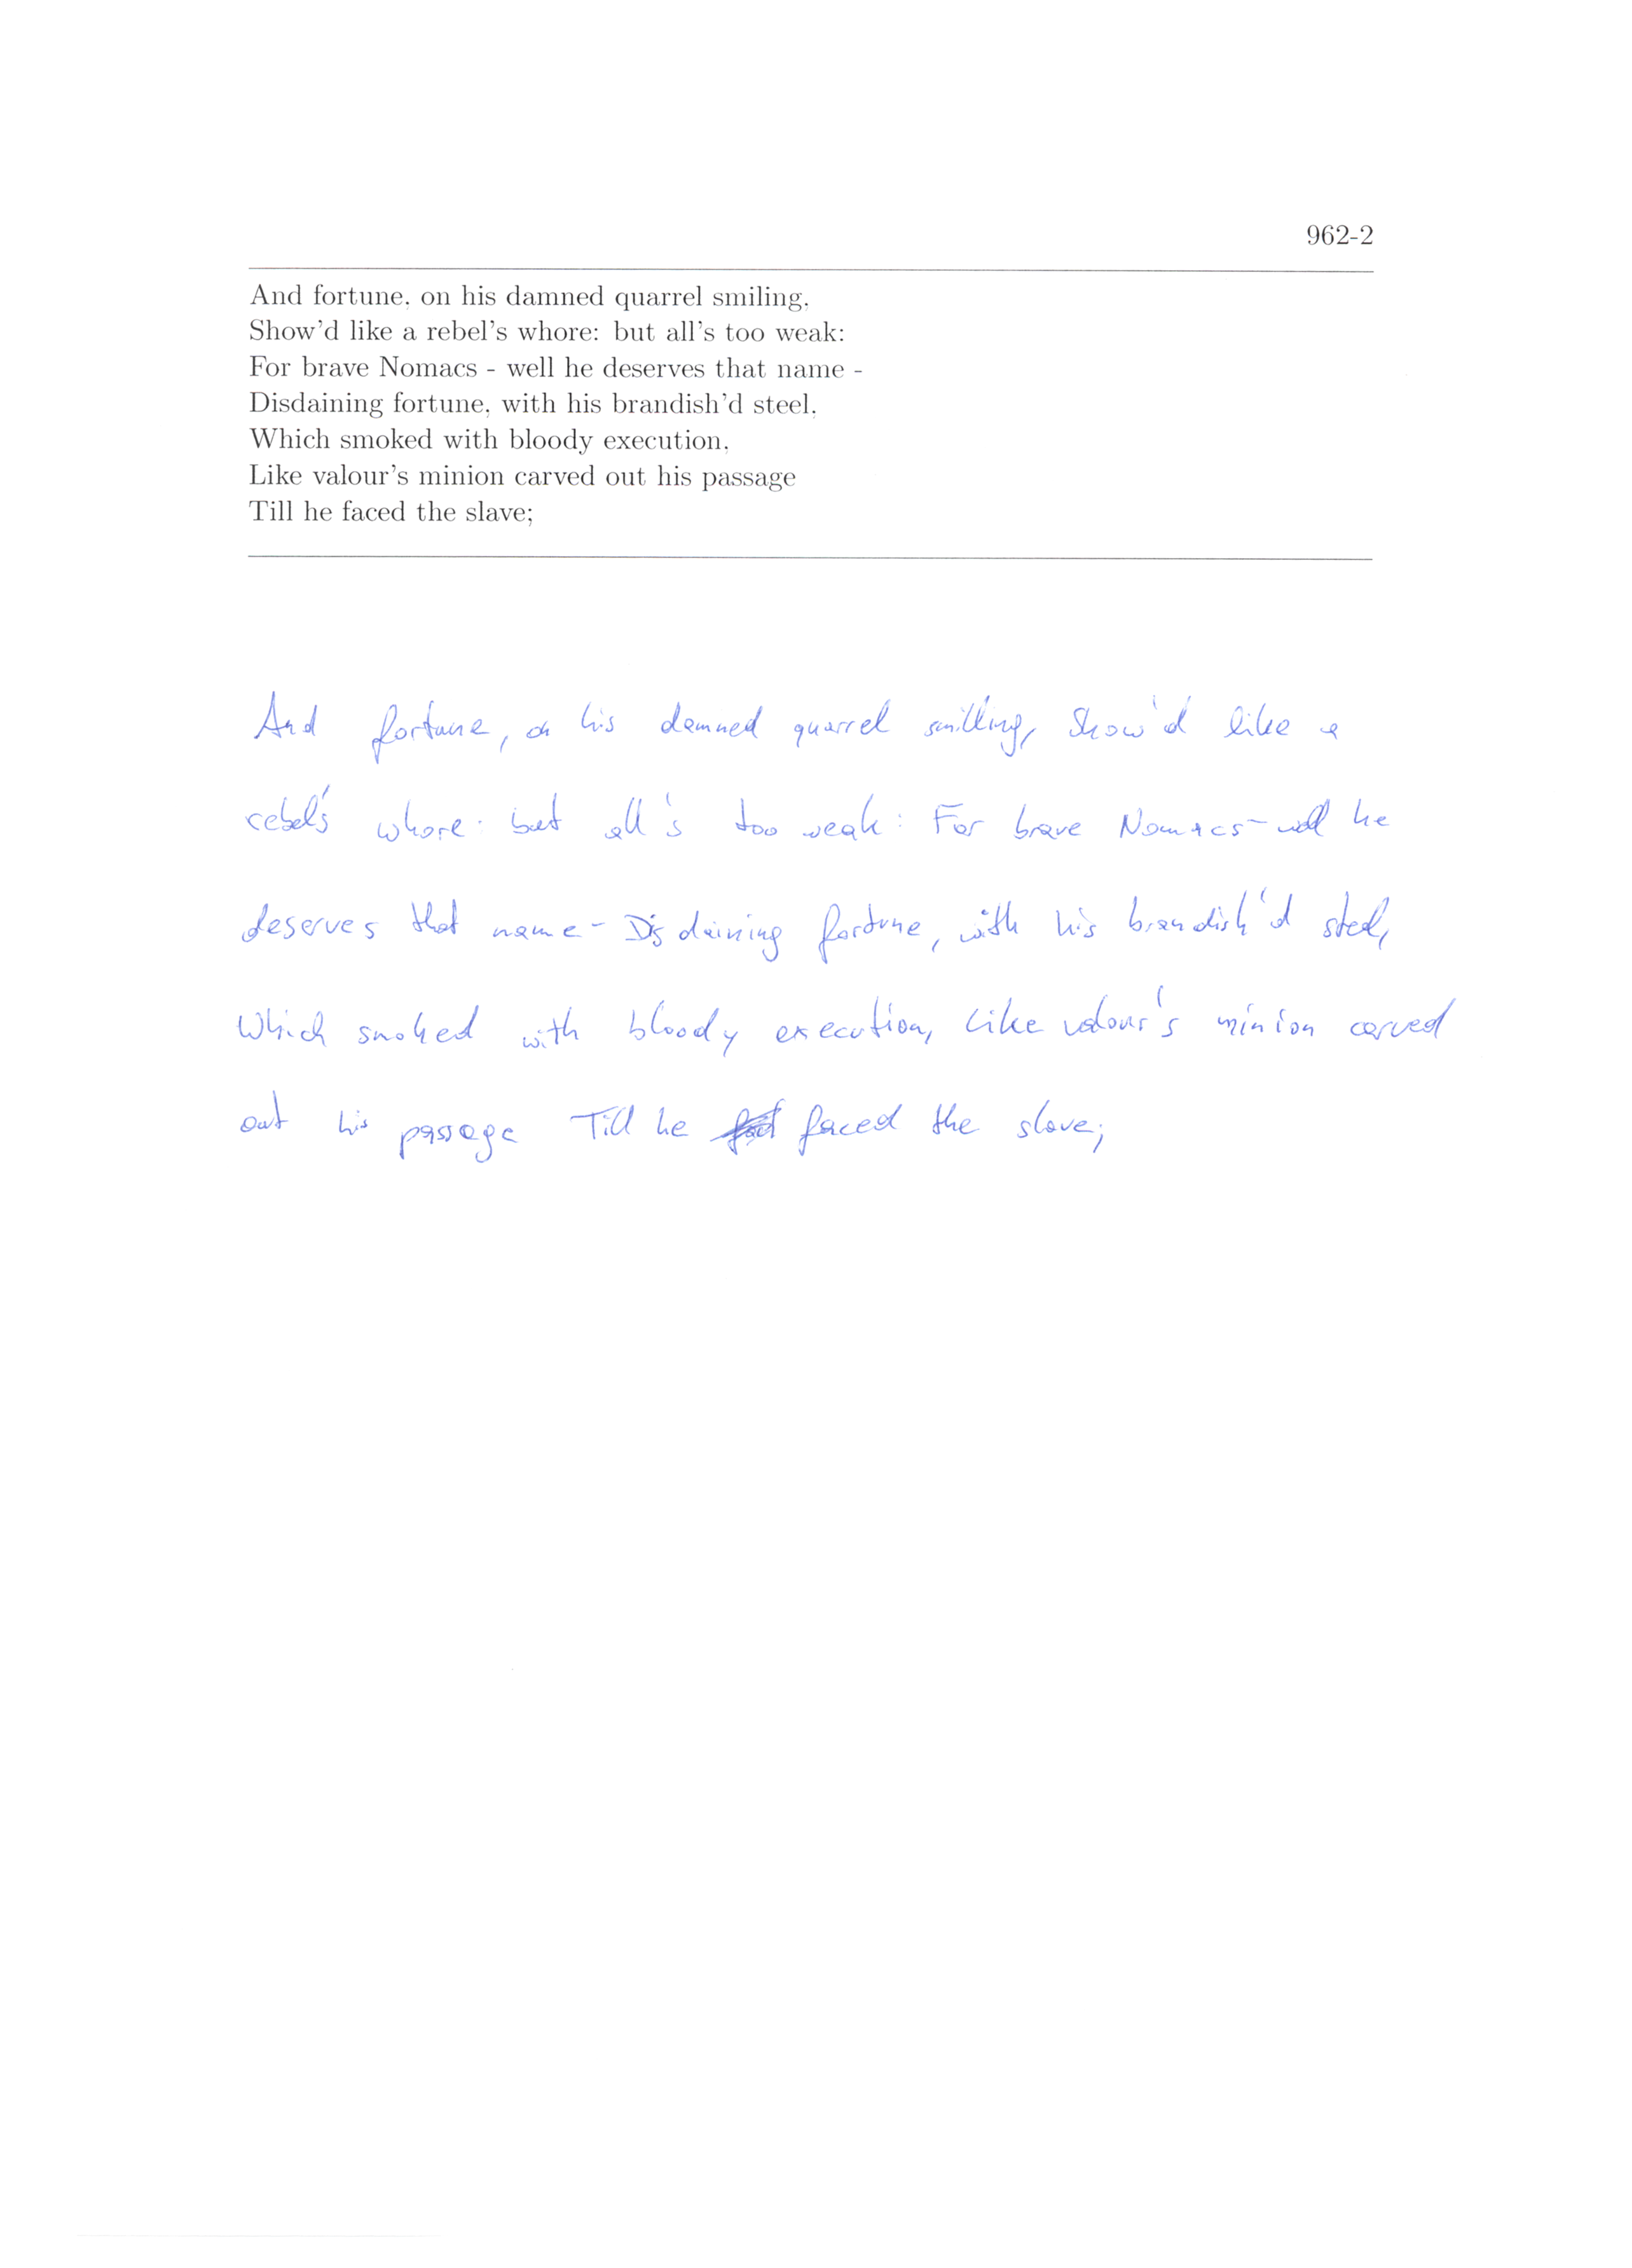 962-2
And fortune, on his damned quarrel smiling,
Show'd like a rebel's whore: but all's too weak:
For brave Nomacs - well he deserves that name -
Disdaining fortune, with his brandish'd steel,
Which smoked with bloody execution,
Like valour's minion carved out his passage
Till he faced the slave;
And fortune, on his damned quarrel smilling, Show'd like a
rebel's whore: but all's too weak: For brave Nomacs - well he
deserves that name - Disdaining fortune, with his brandish'd steel,
Which smoked with bloody execution, Like valour's minion carved
out his passage Till he faced the slave;